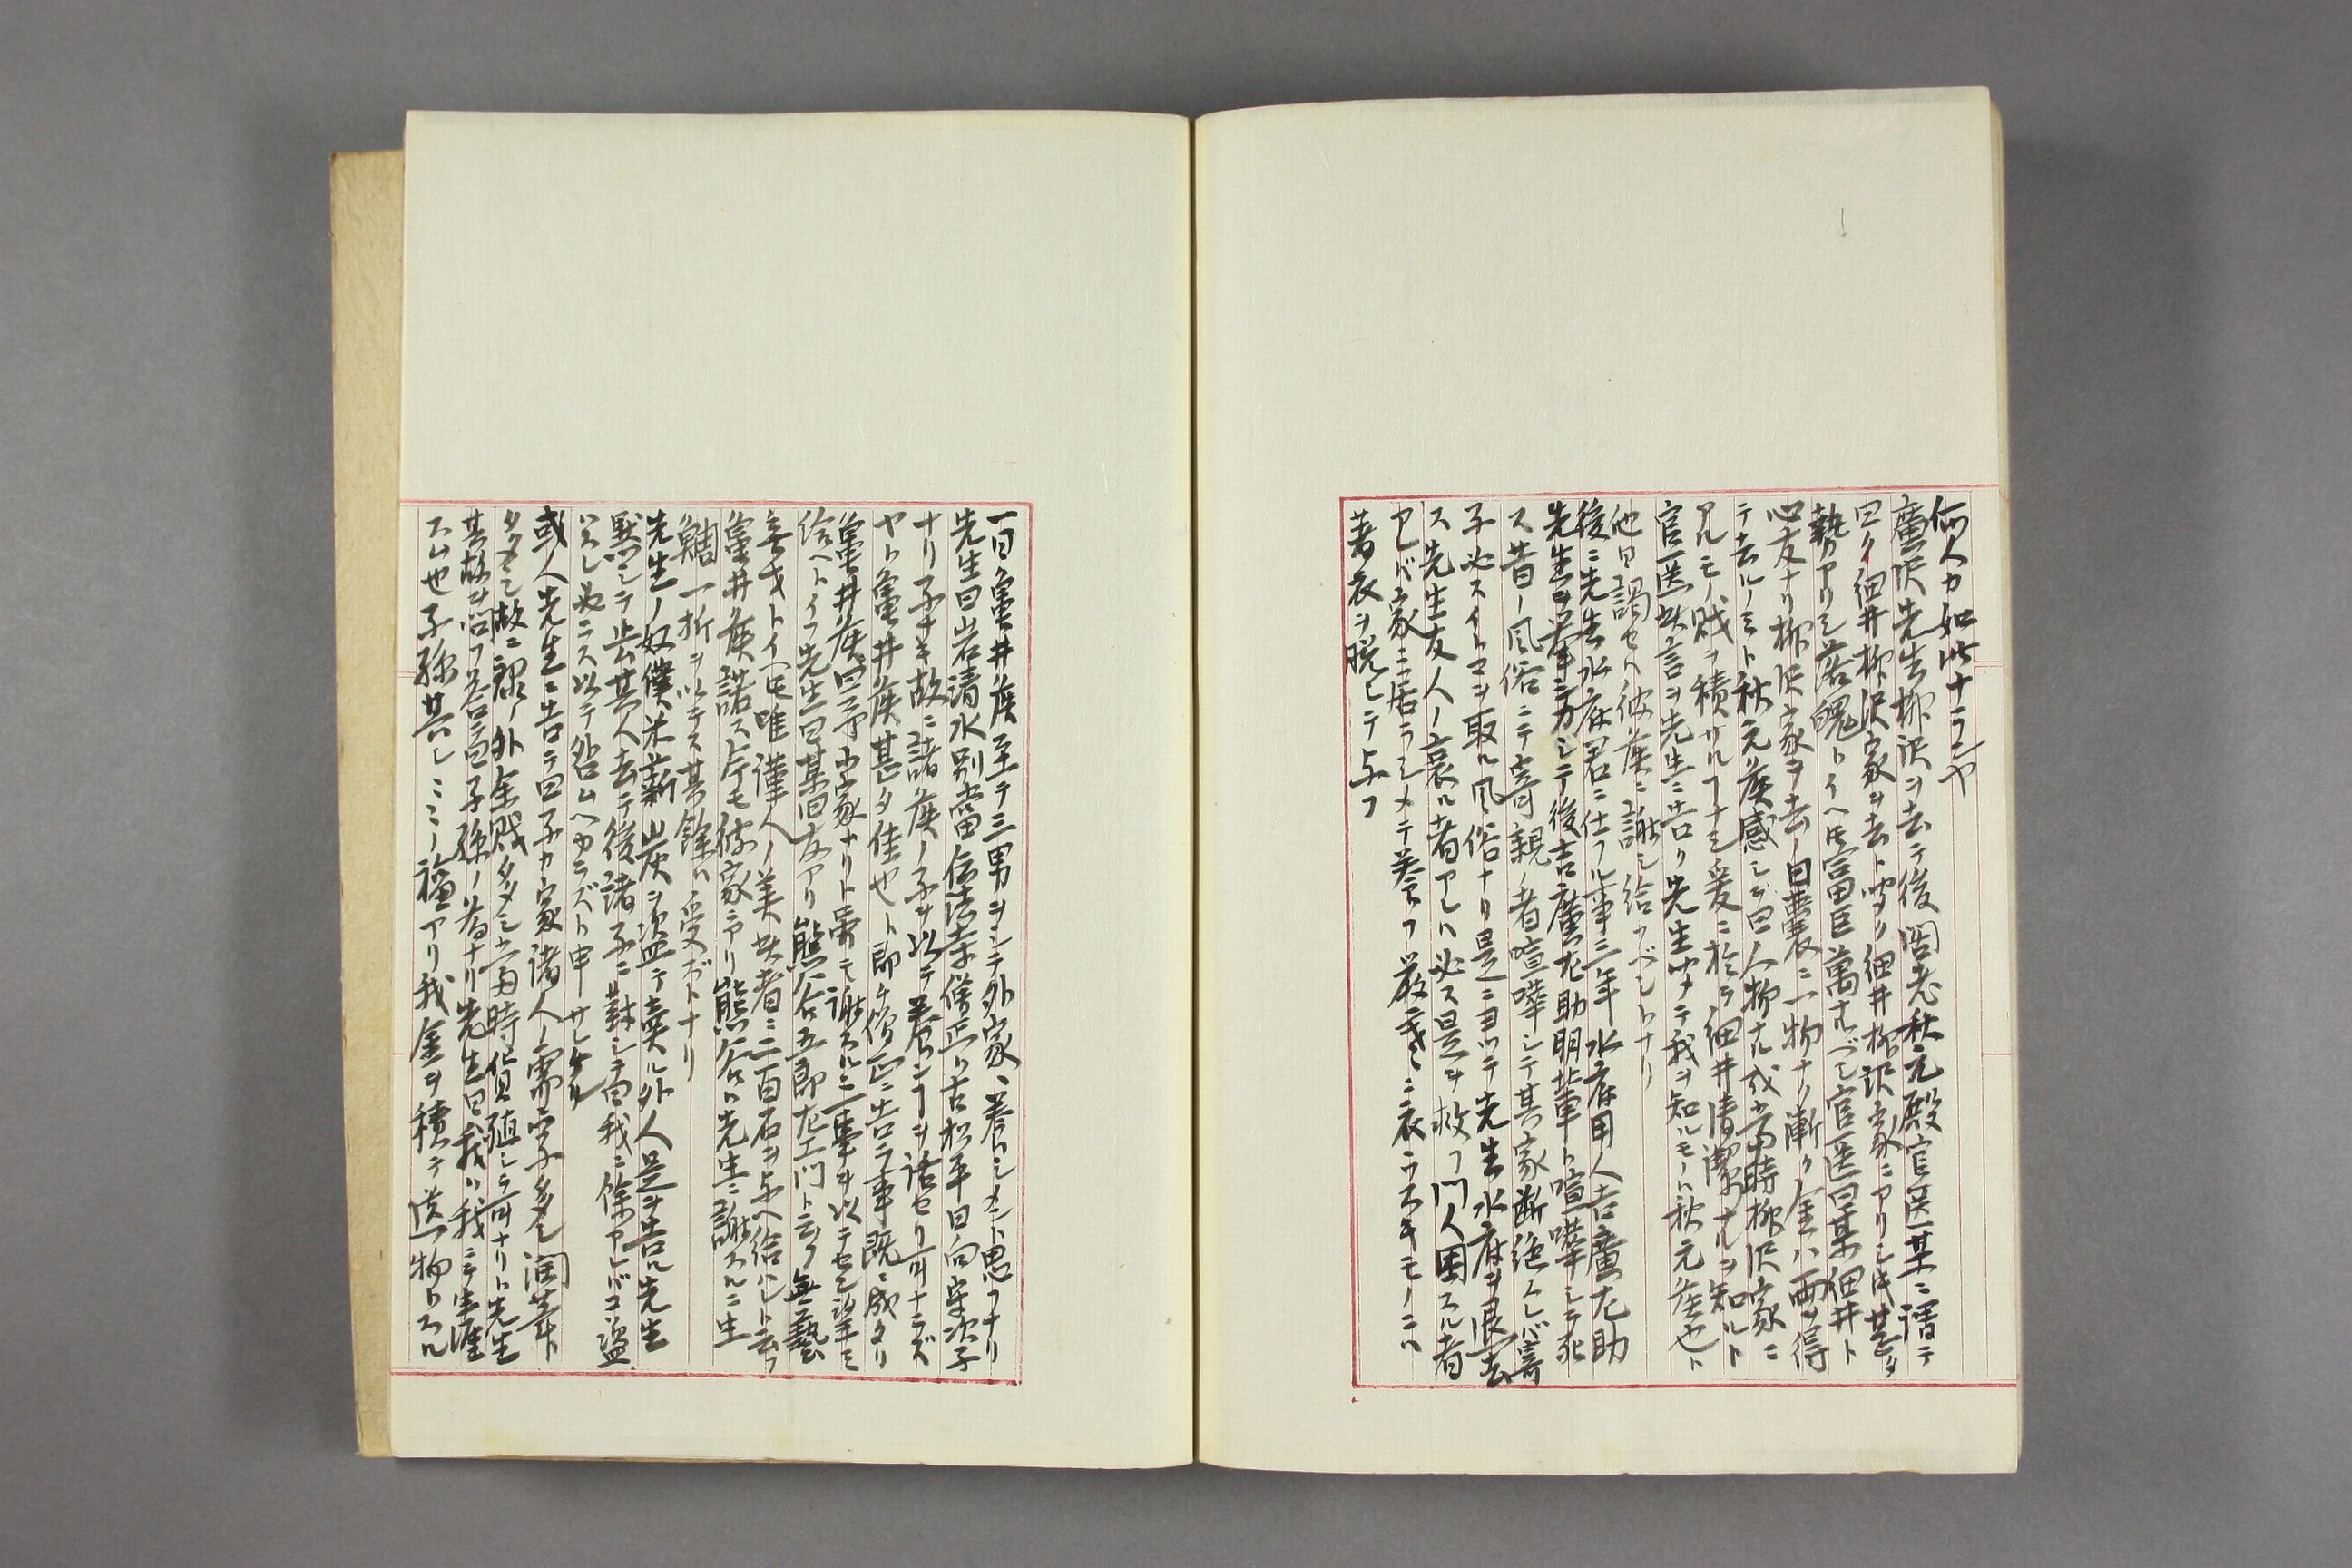 何人カ如此ナランヤ
廣沢先生柳沢ヲ去テ後閣老秋元殿官医某ニ語テ
曰ク細井柳沢家ヲ去ト聞ク細井柳沢家ニアリシ時甚タ
勢アリシ落魄トイヘ𪜈富巨萬ナルベシ官医曰某細井ト
心友ナリ柳沢家ヲ去ノ日嚢ニ一物ナク漸ク金八両ヲ得
テ去ルノミト秋元侯感シテ曰人物ナル哉当時柳沢家ニ
アルモノ賎ヲ積サルヿナシ爰ニ於テ細井清潔ナルヲ知ルト
官医此言ヲ先生ニ告ク先生聞テ我ヲ知ルモノハ秋元侯也ト
他日謁セハ彼侯ニ謝シ給フベシトナリ
後ニ先生水府君ニ仕フル事三年水府用人吉廣尤助
先生ヲ挙シ力シテ後吉廣尤助朋輩ト喧嘩シテ死
ス昔ノ風俗ニテ寄親ノ者喧嘩シテ其家断絶スレバ寄
子必スイトマヲ取ル風俗ナリ是ニヨツテ先生水府ヲ退去
ス先生友人ノ哀ル者アレハ必ス是ヲ救フ門人困スル者
アレバ家ニ居ラシメテ養フ厳寒ニ衣ウスキモノニハ
著衣ヲ脱シテ与フ
一日亀井侯至テ三男ヲシテ外家ヘ養ハシメント思フナリ
先生曰岩清水別当伝法寺僧正ハ古松平日向守次子
ナリ子ナキ故ニ諸侯ノ子ヲ以テ養ハンヿヲ話セリ可ナラズ
ヤト亀井侯甚タ佳也ト即チ僧正ニ告ラ事既ニ成タリ
亀井侯曰予小家ナリト雖モ謝スルニ一事ヲ以テセン望ミ
給ヘトイフ先生曰某旧友アリ熊谷五郎左エ門ト云フ無藝
無才トイヘ𪜈唯謹人ノ美此者ニ二百石ヲ与ヘ給ハント云フ
亀井侯諾ス今モ彼家ニアリ熊谷ハ先生ニ謝スルニ生
鯛一折ヲ以テス其餘ハ受ズトナリ
先生ノ奴僕米薪炭ヲ盗テ売ル外人是ヲ告ル先生
黙シテ止ム其人去テ後諸子ニ對シテ曰我ニ餘アレバコソ盗
ハスレ必ニス以テ咎ムヘカラズト申サレケル
或人先生ニ告テ曰子カ家諸人ノ需字多ク潤筆ト
タメシ故ニ禄ノ外金賎タメシ当時貨殖シテ可ナリト先生
其故ヲ問フ答曰子孫ノ為ナリ先生曰我ハ我ニテ生涯
スム也子孫其レ〳〵ノ福アリ我金ヲ積テ送物トスル